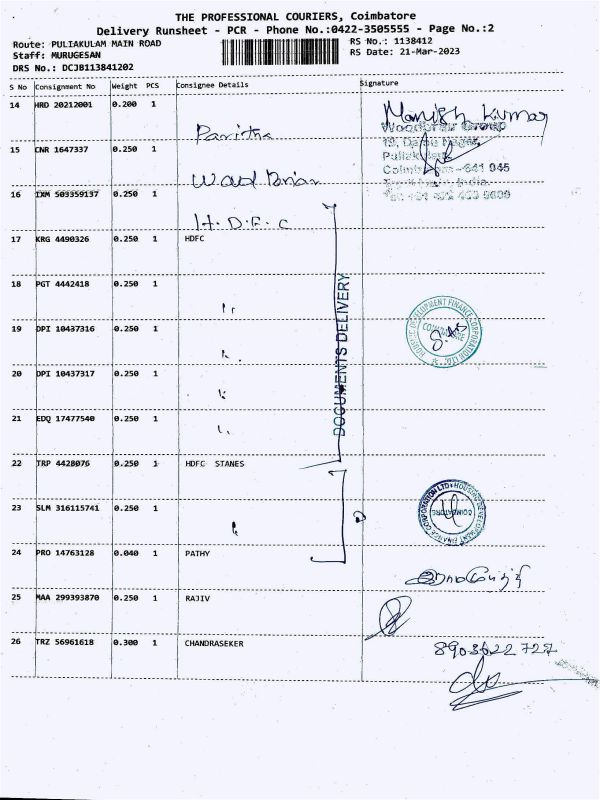 THE PROFESSIONAL COURIERS, Coimbatore
Delivery Runsheet - PCR - Phone No.:0422-3505555 - Page No.:2
Route: PULIAKULAM MAIN ROAD RS No.: 1138412
Staff: MURUGESAN RS Date: 21-Mar-2023
DRS No.: DCJB113841202
S No Consignment No Weight PCS Consignee Details Signature
14 HRD 20212001 0.200 1
Pavithra Manish Kumar
Woodbriar Group
15 CNR 1647337 0.250 1
Wood Briar
Coimbatore - 641 045
16 IXM 503359137 0.250 1
H.D.F.C
17 KRG 4490326 0.250 1 HDFC
18 PGT 4442418 0.250 1
19 DPI 10437316 0.250 1
20 DPI 10437317 0.250 1
21 EDQ 17477540 0.250 1
DOCUMENTS DELIVERY
HOUSING DEVELOPMENT FINANCE CORPORATION LTD.
COIMBATORE
22 TRP 4428076 0.250 1 HDFC STANES
23 SLM 316115741 0.250 1
HOUSING DEVELOPMENT FINANCE CORPORATION LTD
COIMBATORE
24 PRO 14763128 0.040 1 PATHY
25 MAA 299393870 0.250 1 RAJIV
26 TRZ 56961618 0.300 1 CHANDRASEKER
8903622727